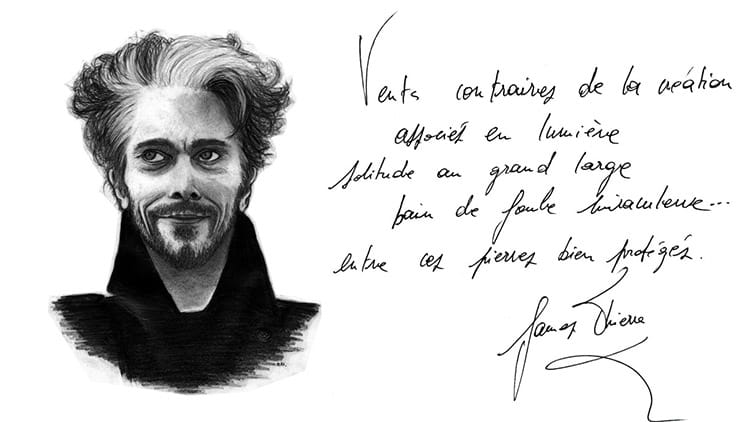 Vents contraires de la création
associés en lumière
solitude au grand large
bain de foule miraculeuse...
entre ces pierres bien protégés.
James Thierrée